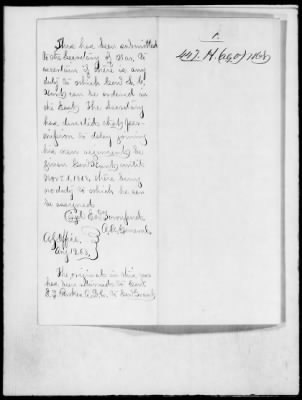 This has been submitted
to the Secretary of War, to
ascertain if there is any
duty to which Genl. H. J.
Hunt can be ordered in
the East. The Secretary
has directed that per-
mission to delay joining
his new regiment be
given Genl. Hunt until
Nov. 1, 1868, there being
no duty to which he can
be assigned.
E. D. Townsend
A. Genl.
A. G. Office
Aug 1868
The originals in this case
has been returned to Genl
to Genl Grant
1.
447. H. (690) 1868